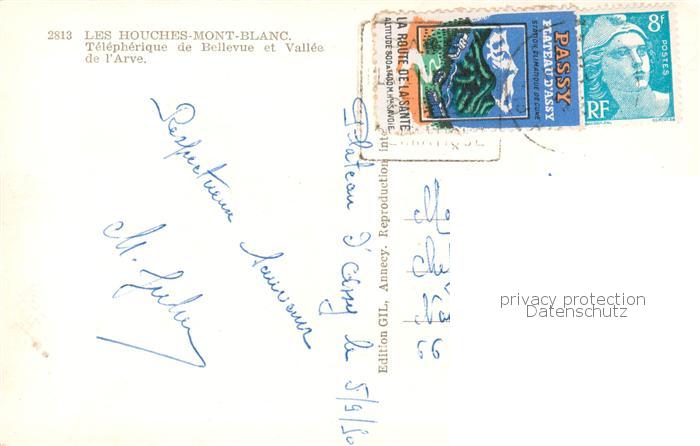 2813 LES HOUCHES-MONT-BLANC.
Téléphérique de Bellevue et Vallée
de l'Arve.
PASSY
PLATEAU D'ASSY
STATION CLIMATIQUE DE CURE
LA ROUTE DE LA SANTÉ
ALTITUDE 500 A 1400 M. Hte SAVOIE
8f
POSTES
RF
Respectueux
Souvenir
M.
Plateau d'Assy le 5/9/50
Edition GIL, Annecy. Reproduction inte
privacy protection
Datenschutz